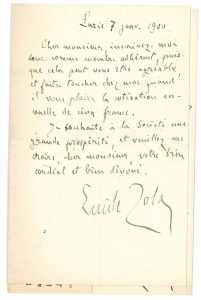 Paris 7 janv. 1900
Cher monsieur, inscrivez-moi
donc comme membre adhérent, puis-
que cela peut vous être agréable,
et faites toucher chez moi quand
il vous plaira la cotisation an-
nuelle de cinq francs.
Je souhaite à la Société une
grande prospérité, et veuillez me
croire, cher monsieur, votre bien
cordial et bien dévoué.
Emile Zola